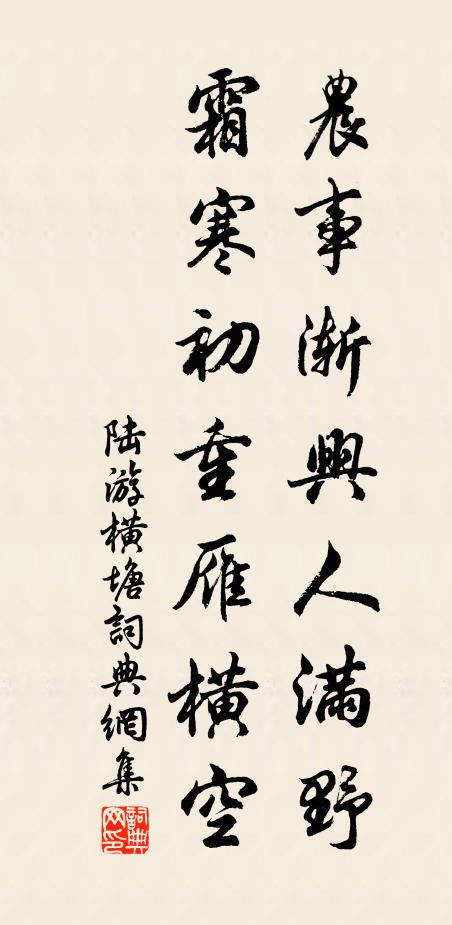 農事漸興人滿野
霜寒初重雁橫空
陸游橫塘詞典網集
詞典網印